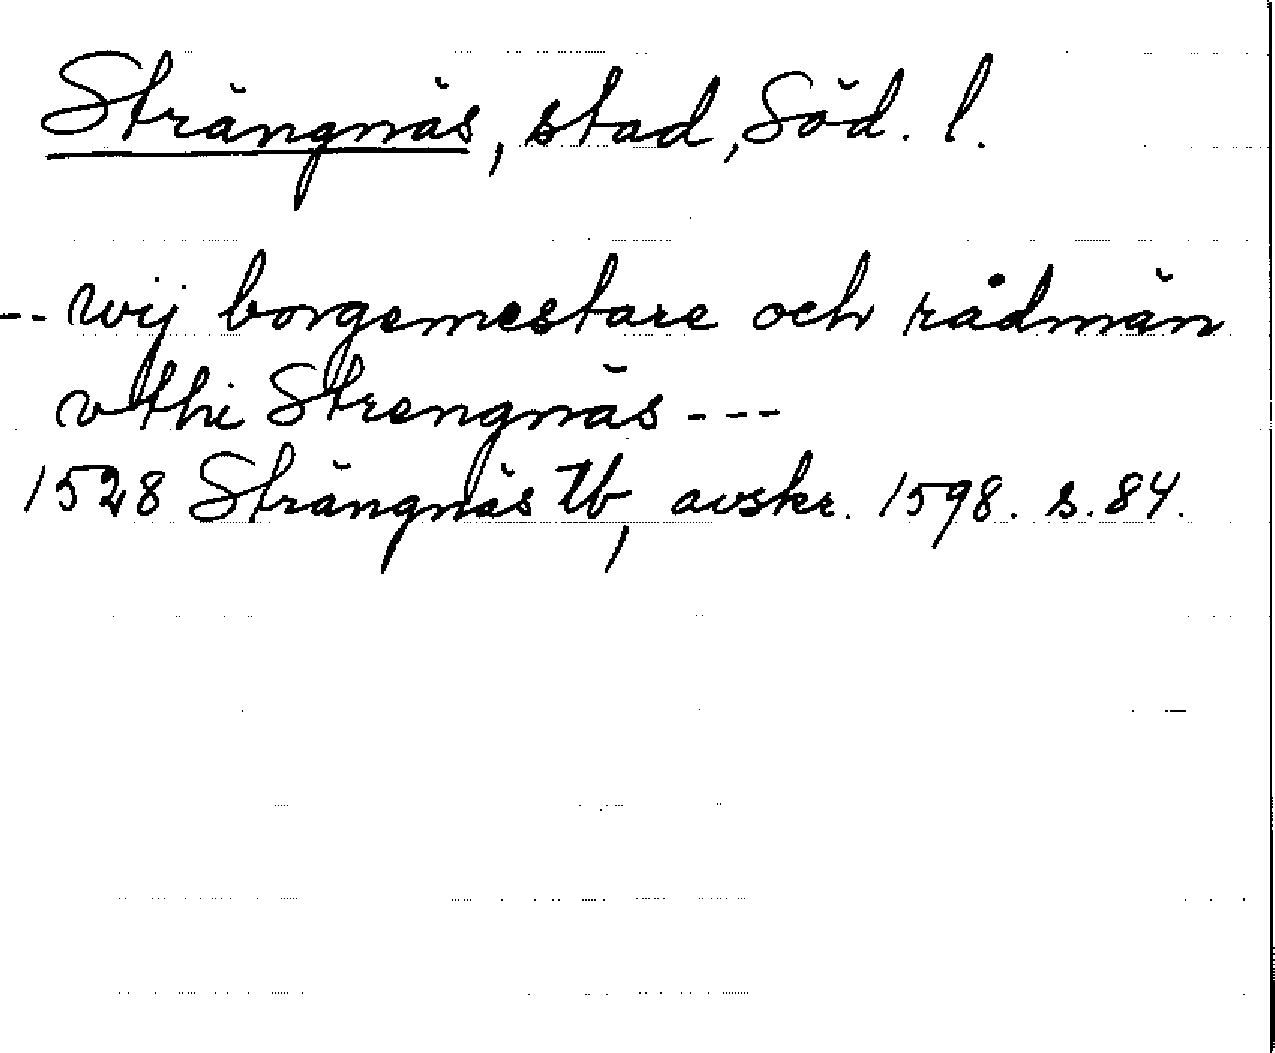 Strängnäs, stad, Söd. l.
-- wij borgemestare och rådmän
vthi Strengnäs ---
1528 Strängnäs Tb, avskr. 1598. s. 84.